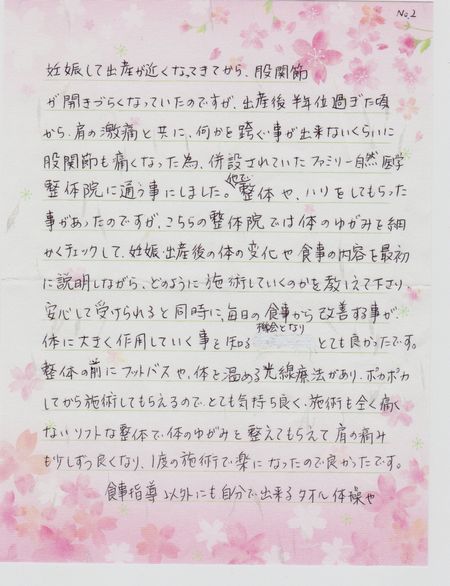 No.2
妊娠して出産が近くなってきてから、股関節
が開きづらくなっていたのですが、出産後半年位過ぎた頃
から、肩の激痛と共に、何かを跨ぐ事が出来ないくらいに
股関節も痛くなった為、併設されていたファミリー自然医学
整体院に通う事にしました。他でも整体や、ハリをしてもらった
事があったのですが、こちらの整体院では体のゆがみを細
かくチェックして、妊娠・出産後の体の変化や食事の内容を最初
に説明しながら、どのように施術していくのかを教えて下さり、
安心して受けられると同時に、毎日の食事から改善する事が、
体に大きく作用していく事を知る機会となりとても良かったです。
整体の前にフットバスや、体を温める光線療法があり、ポカポカ
してから施術してもらえるので、とても気持ち良く、施術も全く痛く
ないソフトな整体で、体のゆがみを整えてもらえて肩の痛み
も少しずつ良くなり、1度の施術で楽になったので良かったです。
食事指導以外にも自分で出来るタオル体操や